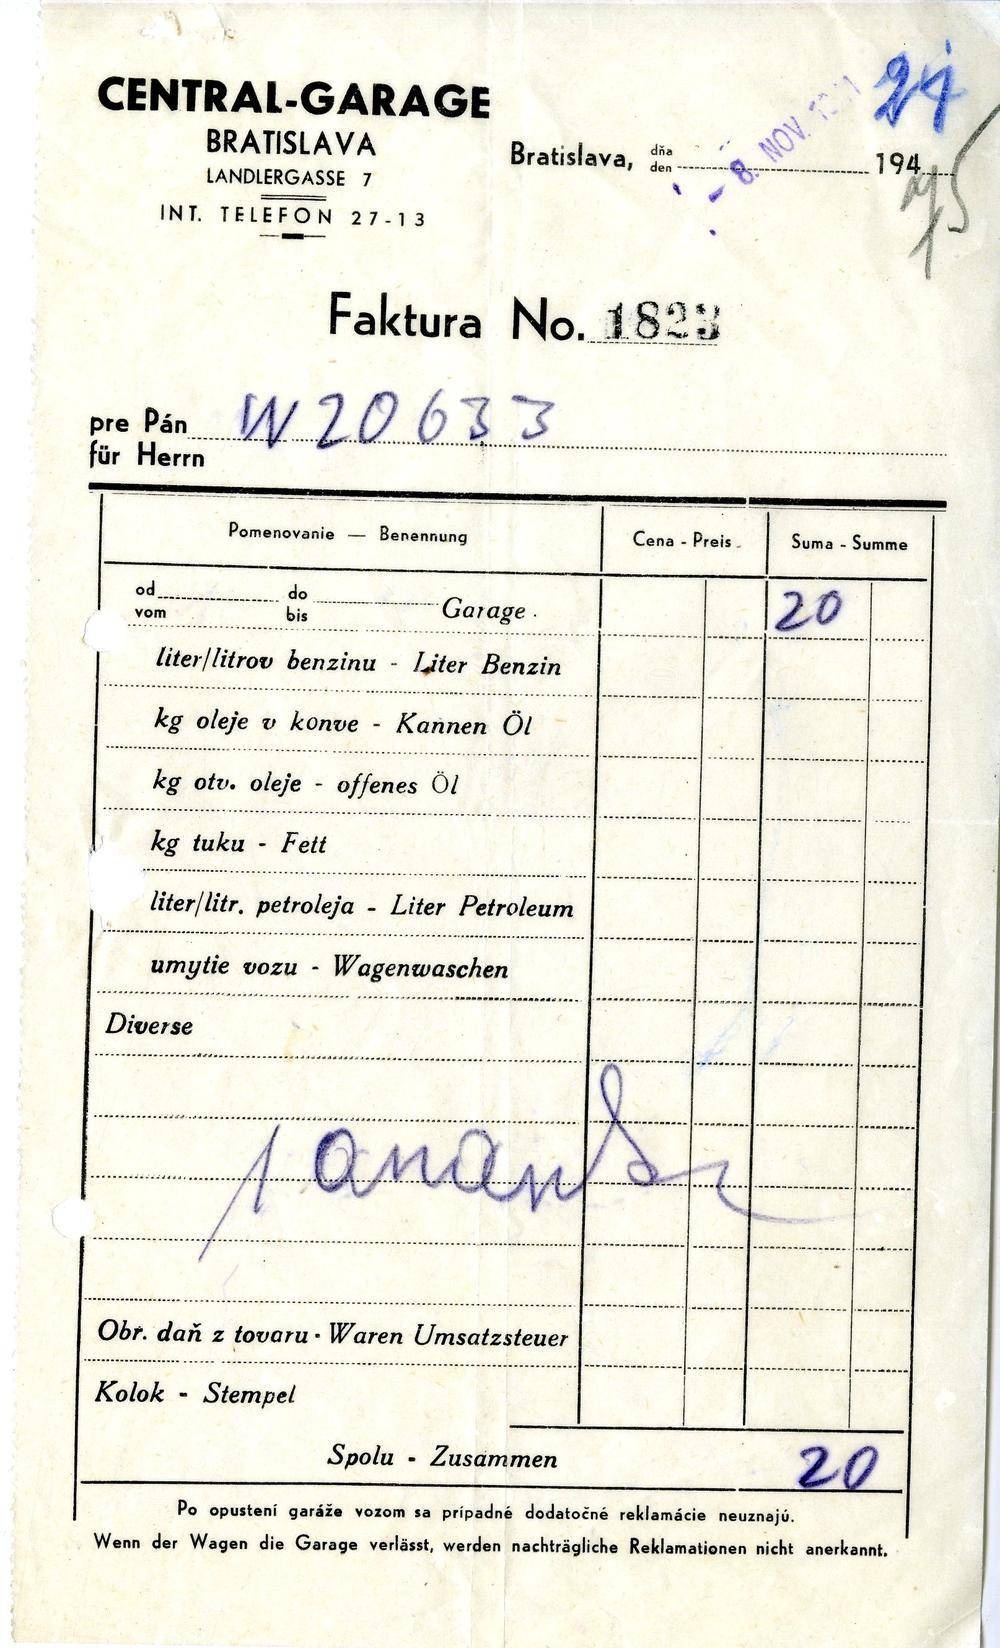 24
CENTRAL-GARAGE
BRATISLAVA
LANDLERGASSE 7
INT. TELEFON 27-13
Bratislava, dňa
den
8. NOV. 194
Faktura No. 1823
pre Pán W 20633
für Herrn
Pomenovanie — Benennung Cena - Preis Suma - Summe
od do
vom bis Garage. 20
liter/litrov benzinu - Liter Benzin
kg oleje v konve - Kannen Öl
kg otv. oleje - offenes Öl
kg tuku - Fett
liter/litr. petroleja - Liter Petroleum
umytie vozu - Wagenwaschen
Diverse
Obr. daň z tovaru - Waren Umsatzsteuer
Kolok - Stempel
Spolu - Zusammen 20
Po opustení garáže vozom sa prípadné dodatočné reklamácie neuznajú.
Wenn der Wagen die Garage verlässt, werden nachträgliche Reklamationen nicht anerkannt.